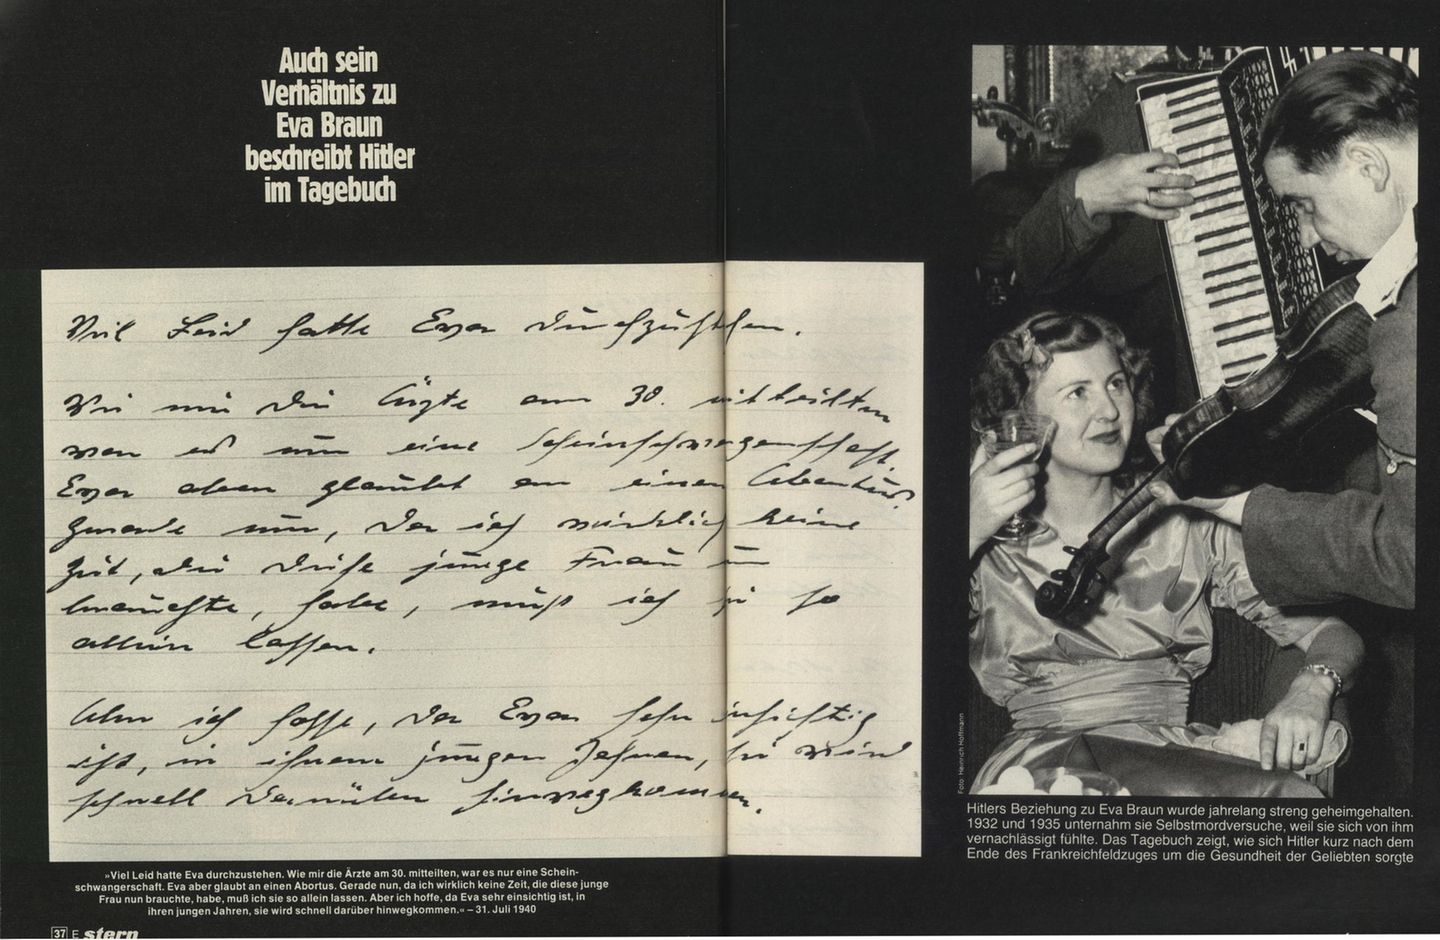 Auch sein
Verhältnis zu
Eva Braun
beschreibt Hitler
im Tagebuch
Viel Leid hatte Eva durchzustehen.
Wie mir die Ärzte am 30. mitteilten
war es nur eine Scheinschwangerschaft.
Eva aber glaubt an einen Abortus.
Gerade nun, da ich wirklich keine
Zeit, die diese junge Frau nun
brauchte, habe, muß ich sie so
allein lassen.
Aber ich hoffe, da Eva sehr einsichtig
ist, in ihren jungen Jahren, sie wird
schnell darüber hinwegkommen.
»Viel Leid hatte Eva durchzustehen. Wie mir die Ärzte am 30. mitteilten, war es nur eine Schein-
schwangerschaft. Eva aber glaubt an einen Abortus. Gerade nun, da ich wirklich keine Zeit, die diese junge
Frau nun brauchte, habe, muß ich sie so allein lassen. Aber ich hoffe, da Eva sehr einsichtig ist, in
ihren jungen Jahren, sie wird schnell darüber hinwegkommen.« – 31. Juli 1940
37 E stern
Foto: Heinrich Hoffmann
Hitlers Beziehung zu Eva Braun wurde jahrelang streng geheimgehalten.
1932 und 1935 unternahm sie Selbstmordversuche, weil sie sich von ihm
vernachlässigt fühlte. Das Tagebuch zeigt, wie sich Hitler kurz nach dem
Ende des Frankreichfeldzuges um die Gesundheit der Geliebten sorgte